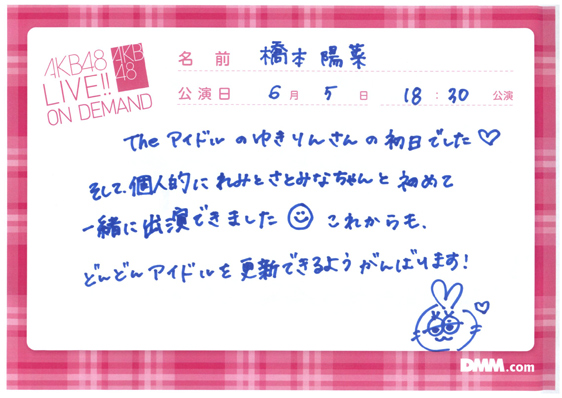 AKB48
LIVE!!
ON DEMAND
AKB
48
名前 橋本陽菜
公演日 6月5日 18:30 公演
Theアイドルのゆきりんさんの初日でした♡
そして、個人的にれみとさとみなちゃんと初めて
一緒に出演できました☺ これからも、
どんどんアイドルを更新できるようがんばります!
DMM.com